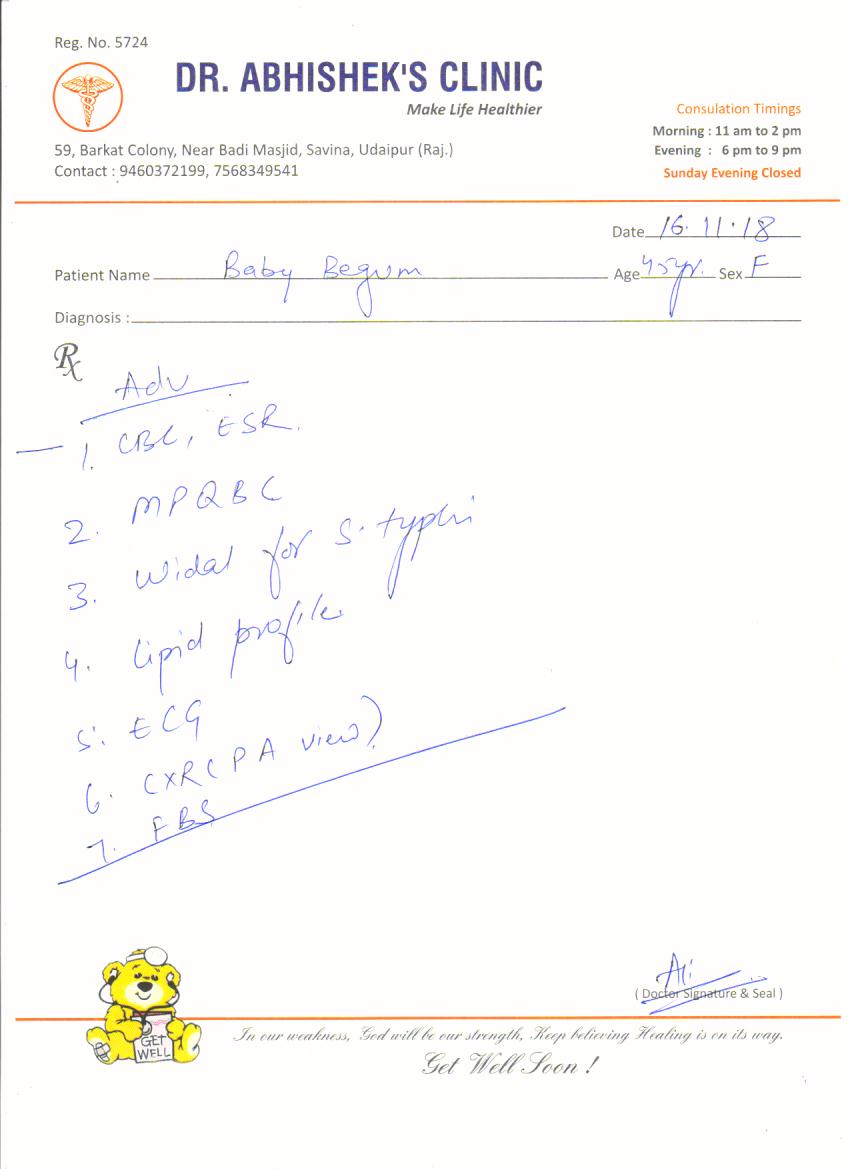 Reg. No. 5724
DR. ABHISHEK'S CLINIC
Make Life Healthier
Consulation Timings
Morning : 11 am to 2 pm
Evening : 6 pm to 9 pm
Sunday Evening Closed
59, Barkat Colony, Near Badi Masjid, Savina, Udaipur (Raj.)
Contact : 9460372199, 7568349541
Date 16.11.18
Patient Name Baby Begum Age 45yr. Sex F
Diagnosis :
Rx
Adv
1. CBC, ESR.
2. MPQBC
3. Widal for S. typhi
4. Lipid profile
5. ECG
6. CXR (PA view)
7. FBS
( Doctor Signature & Seal )
GET
WELL
In our weakness, God will be our strength, Keep believing Healing is on its way.
Get Well Soon !